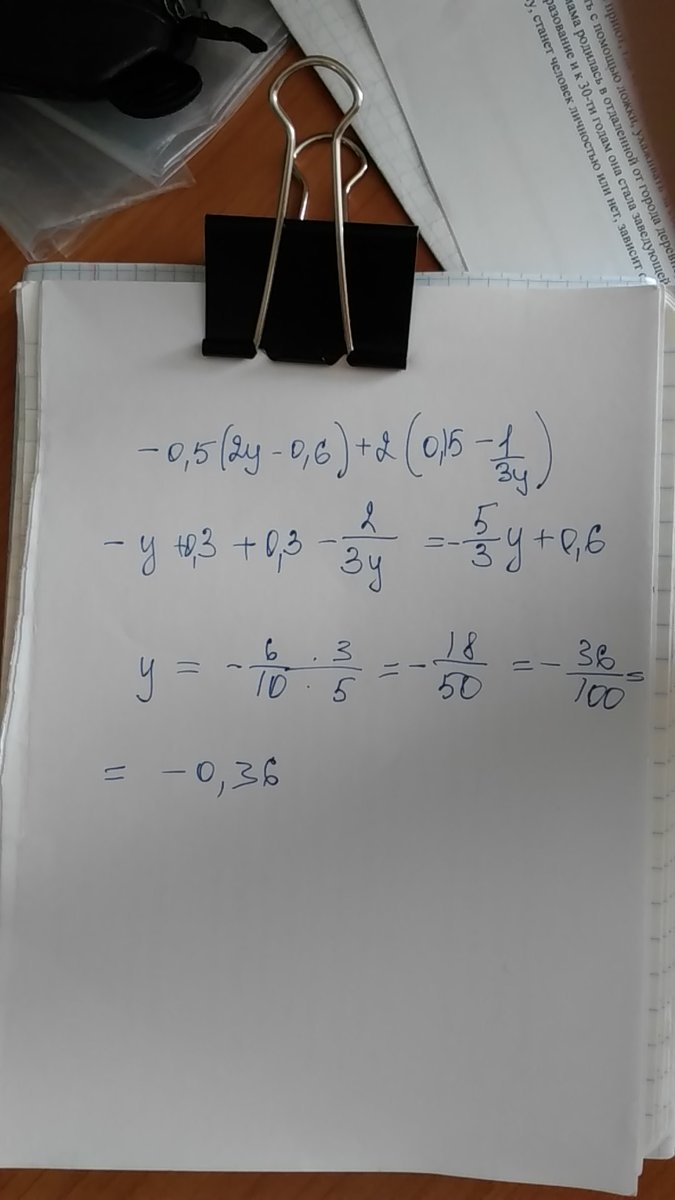 принот,
ть с помощью ложки, ухаживать за
мама родилась в отдаленной от города деревн
разование и к 30-ти годам она стала заведующей
у, станет человек личностью или нет, зависит с
-0,5(2y-0,6)+2(0,15-1/3y)
-y+0,3+0,3-2/3y=-5/3y+0,6
y=-6·3/10·5=-18/50=-36/100=
=-0,36